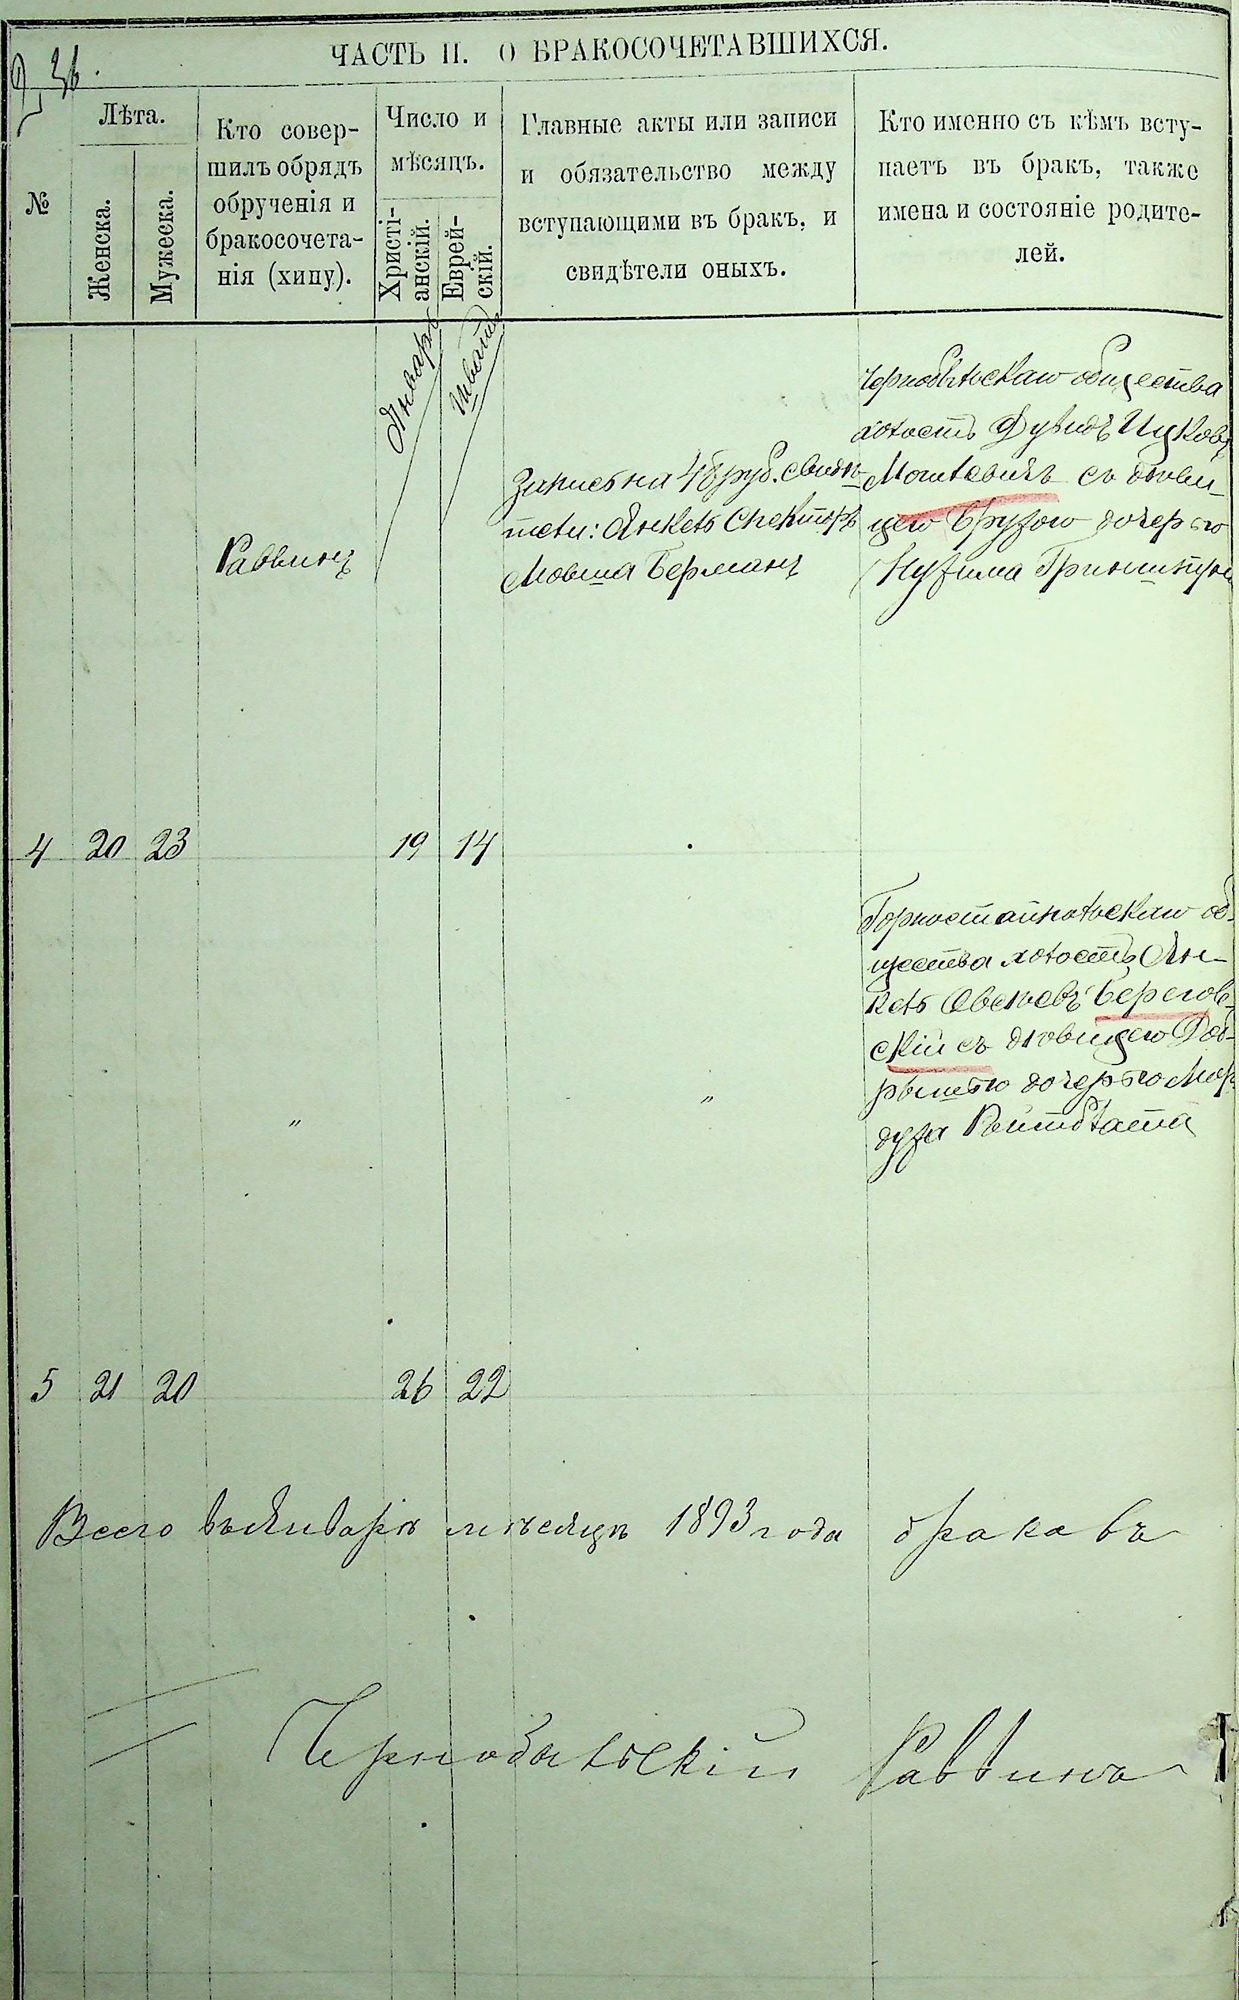 ЧАСТЬ II. О БРАКОСОЧЕТАВШИХСЯ.
№
Лѣта.
Женска.
Мужеска.
Кто совер-
шилъ обрядъ
обрученія и
бракосочета-
нія (хипу).
Число и
мѣсяцъ.
Христі-
анскій.
Еврей-
скій.
Главные акты или записи
и обязательство между
вступающими въ бракъ, и
свидѣтели оныхъ.
Кто именно съ кѣмъ всту-
паетъ въ бракъ, также
имена и состояніе родите-
лей.
Январь
Шватъ
Раввинъ
Запись на 48 руб. свидѣ-
тели: Янкель Спекторъ
Мовша Берманъ
Чернобыльскаго общества
холостъ Дувидъ Ицков.
съ дѣви-
цею Брухою дочерью
Нухима
4 20 23 19 14
Горностайпольскаго об-
щества холостъ Ян-
кель Овсѣевъ Берегов-
скій съ дѣвицею Доб-
рышею дочерью Мор-
духа Ройтблата
" "
5 21 20 26 22
Всего въ Январѣ мѣсяцѣ 1893 года браковъ
Чернобыльскій Раввинъ